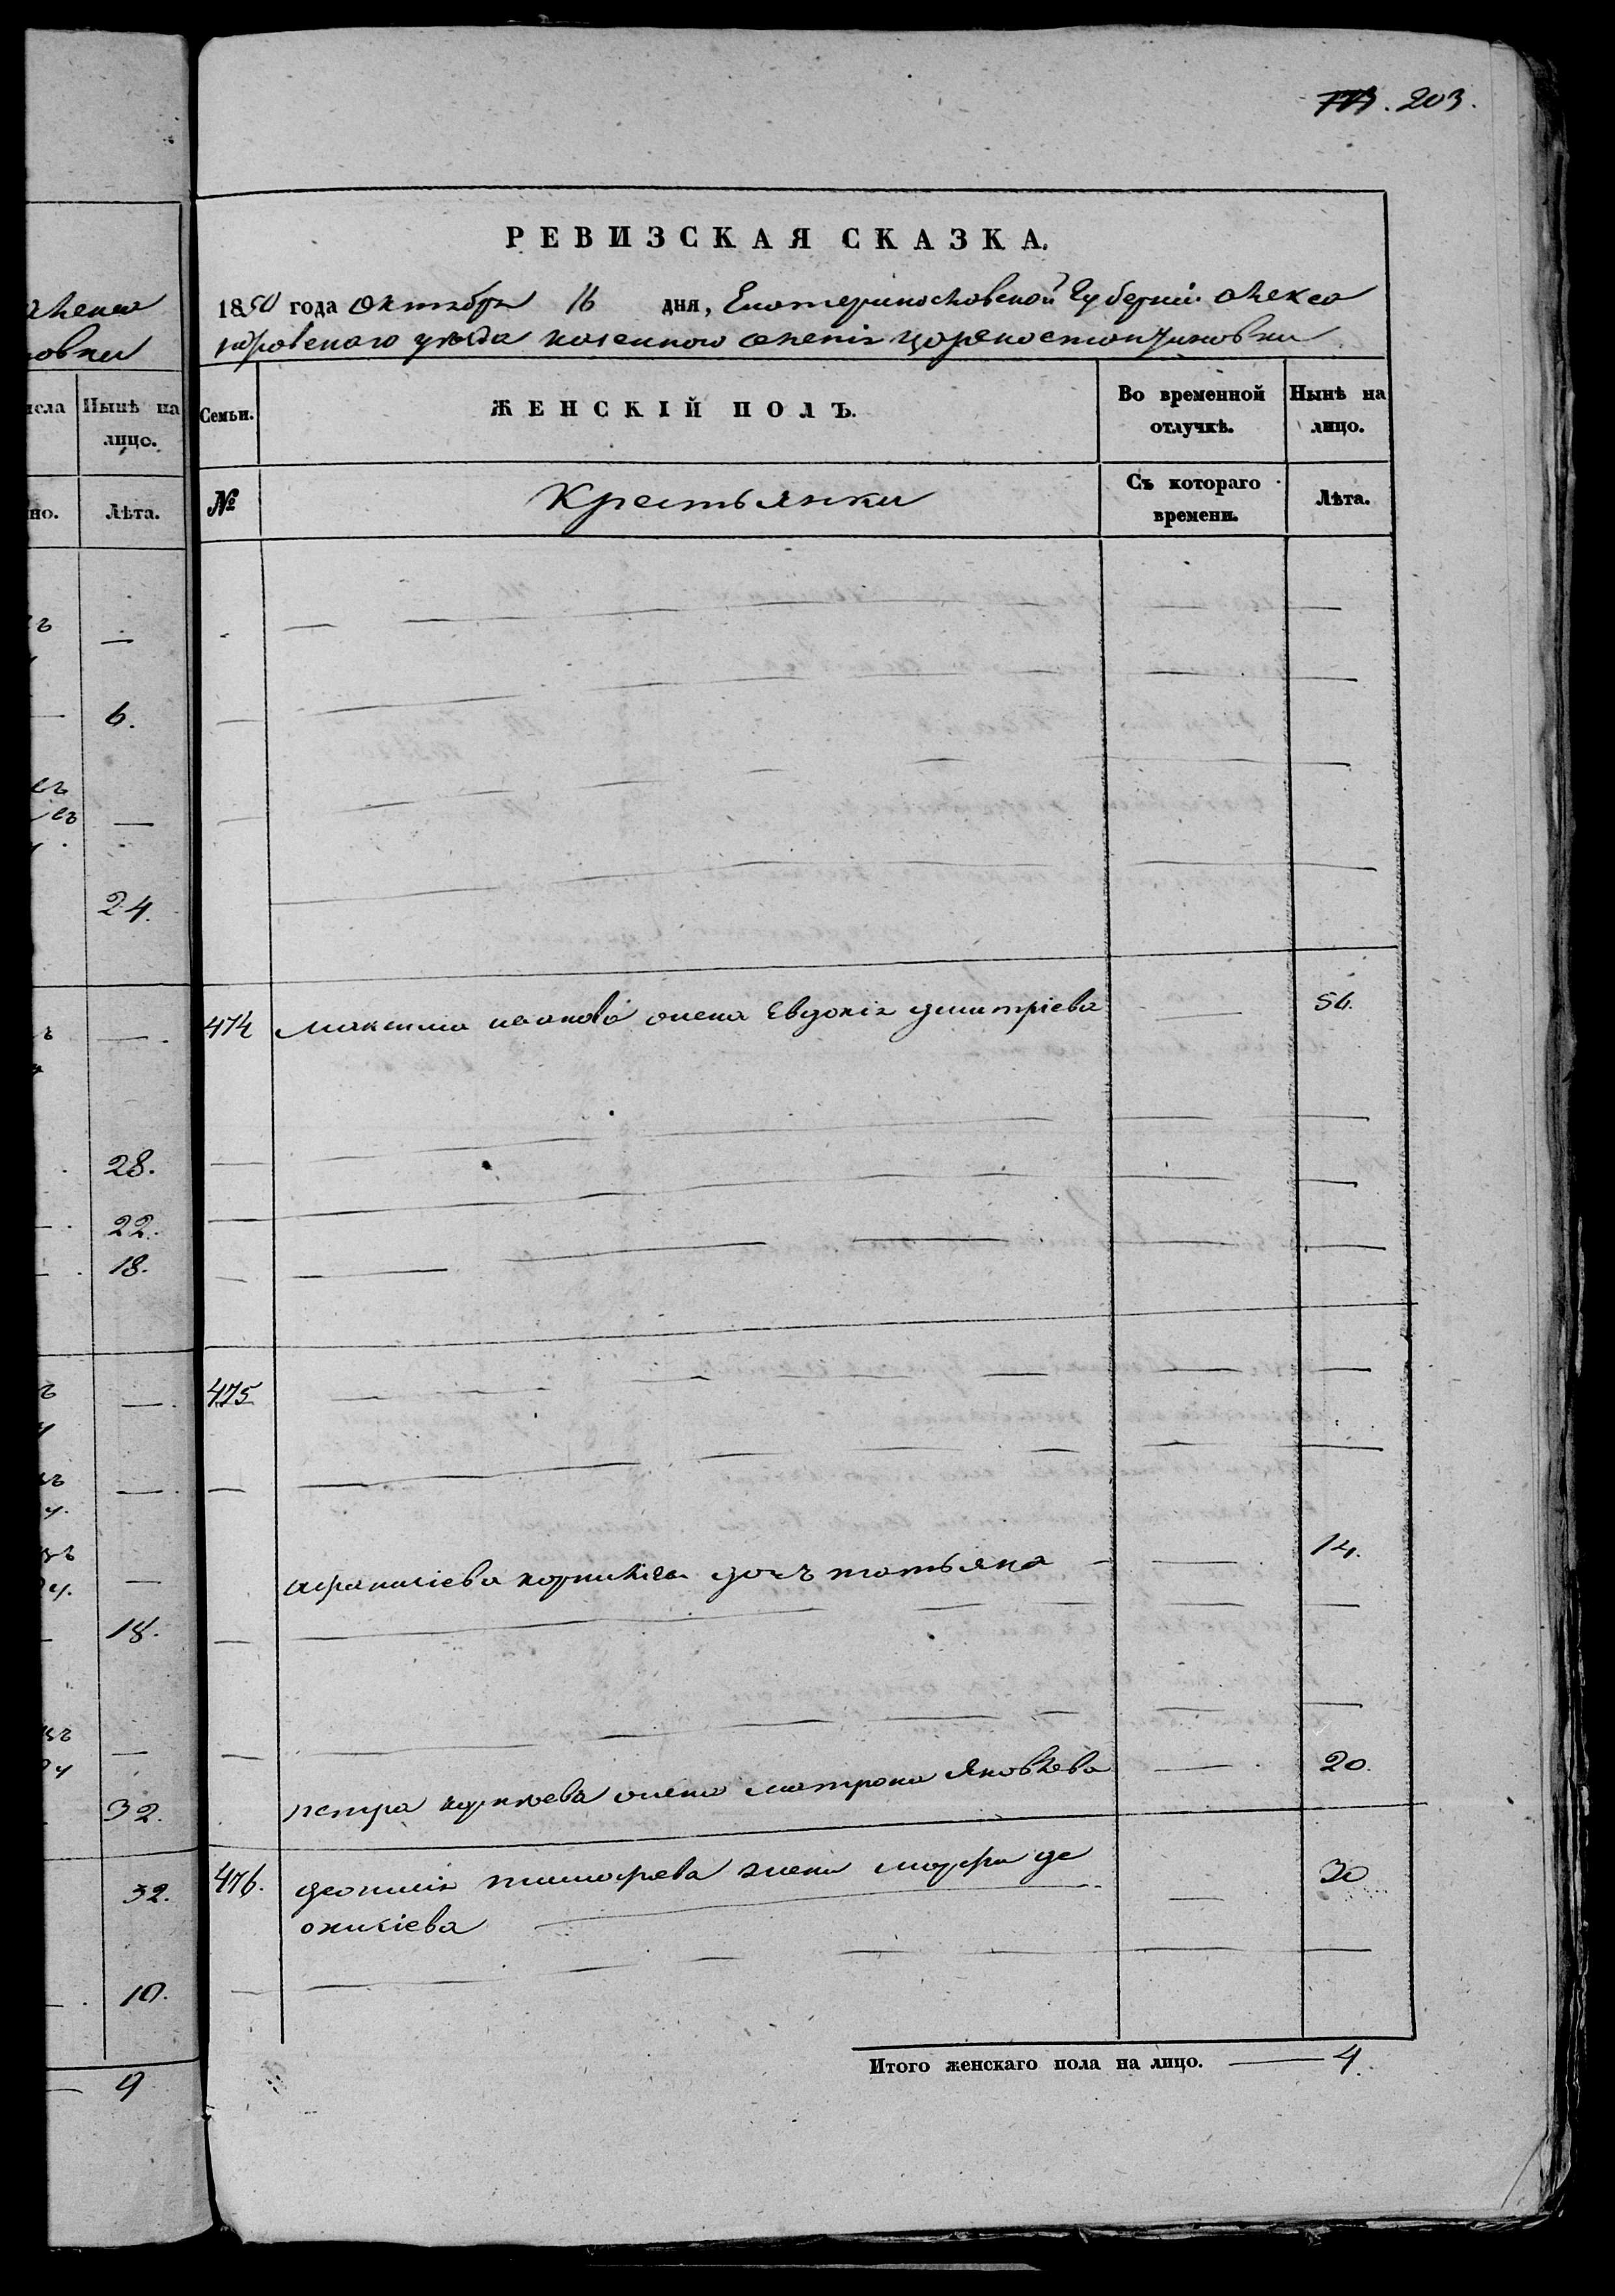 203.
РЕВИЗСКАЯ СКАЗКА.
1850 года октября 16 дня, Екатеринославской Губернии алекса
ндровского уезда казенного селения цареконстантиновки
Семьи. ЖЕНСКІЙ ПОЛЪ. Во временной отлучкѣ. Нынѣ на лицо.
№ Крестьянки Съ котораго времени. Лѣта.
474 максима иванова жена Евдокия дмитріева 54.
475
афанасіева корнилия дочь татьяна 14.
петра жена матрона Яковлева 20.
476. деонисия тимофеева жена марфа де 30
онисіева
Итого женскаго пола на лицо. 4.
овки
исла Нынѣ на
лицо.
но. Лѣта.
6.
24.
28.
22.
18.
18.
32.
32.
10.
9